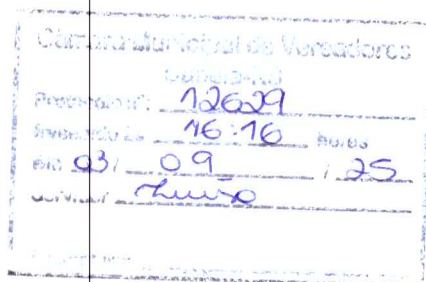 Câmara Municipal de Vereadores
Protocolo nº: 12629
às 16:16 horas
em: 03/ 09 / 25
Servidor